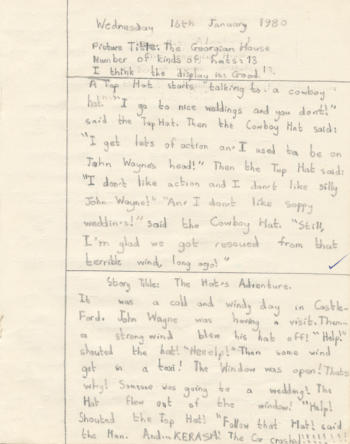 Wednesday 16th January 1980
Picture Title: The Georgian House
Number of kinds of hats: 13
I think the display is: Good
A Top Hat starts talking to a cowboy
hat. "I go to nice weddings and you don't!"
said the Top Hat. Then the Cowboy Hat said:
"I get lots of action and I used to be on
John Wayne's head!" Then the Top Hat said:
"I don't like action and I don't like silly
John Wayne!" "And I don't like soppy
weddings!" said the Cowboy Hat. "Still,
I'm glad we got rescued from that
terrible wind, long ago!"
Story Title: The Hat's Adventure.
It was a cold and windy day in Castle-
Ford. John Wayne was having a visit. Then
a strong wind blew his hat off! "Help!"
shouted the hat! "Heeelp!" Then some wind
got in a taxi! The Window was open! Thats
why! Someone was going to a wedding! The
Hat flew out of the window! "Help!
Shouted the Top Hat! "Follow that Hat! said
the Man. And... KERASH! The Car crashed!!!!!!!!